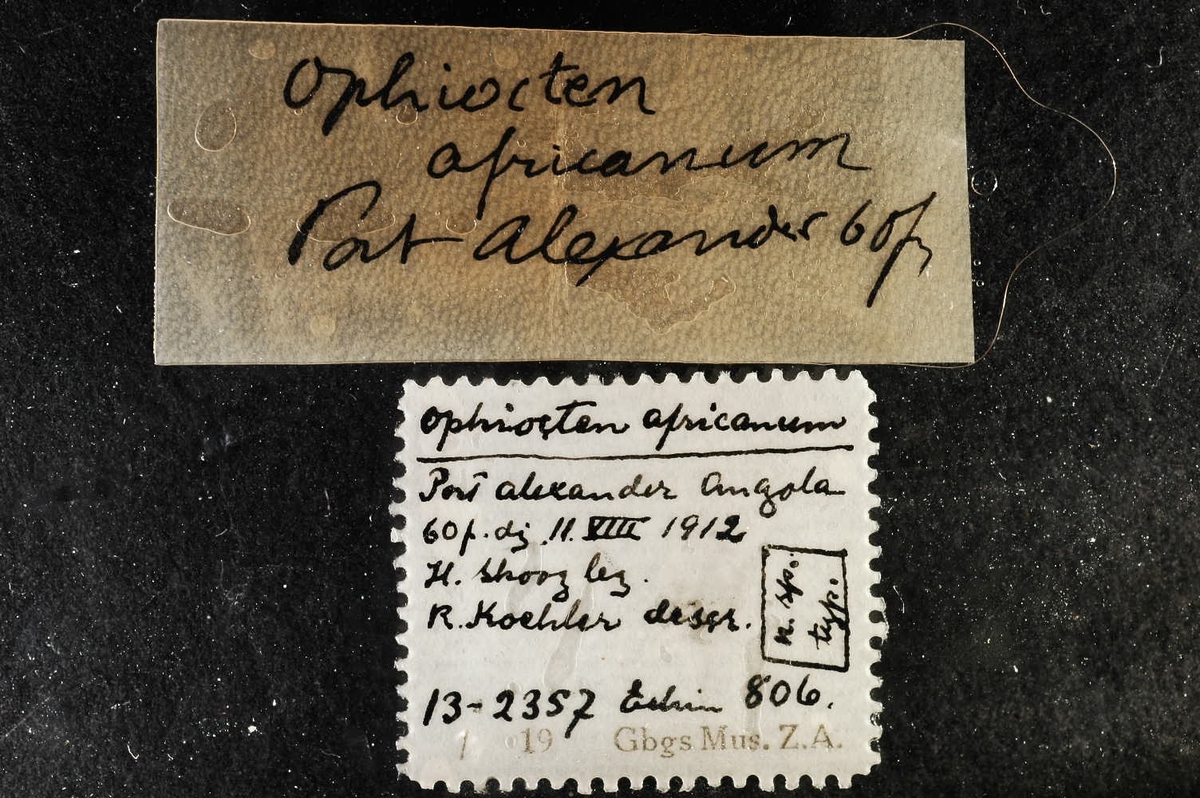 Ophiocten
africanum
Port Alexander 60 f
Ophiocten africanum
Port Alexander Angola
60 f. dj. 11. VIII 1912
H. Skoog leg.
R. Koehler descr.
n. sp.
typ.
13-2357 Echin 806.
/ 19 Gbgs Mus. Z.A.